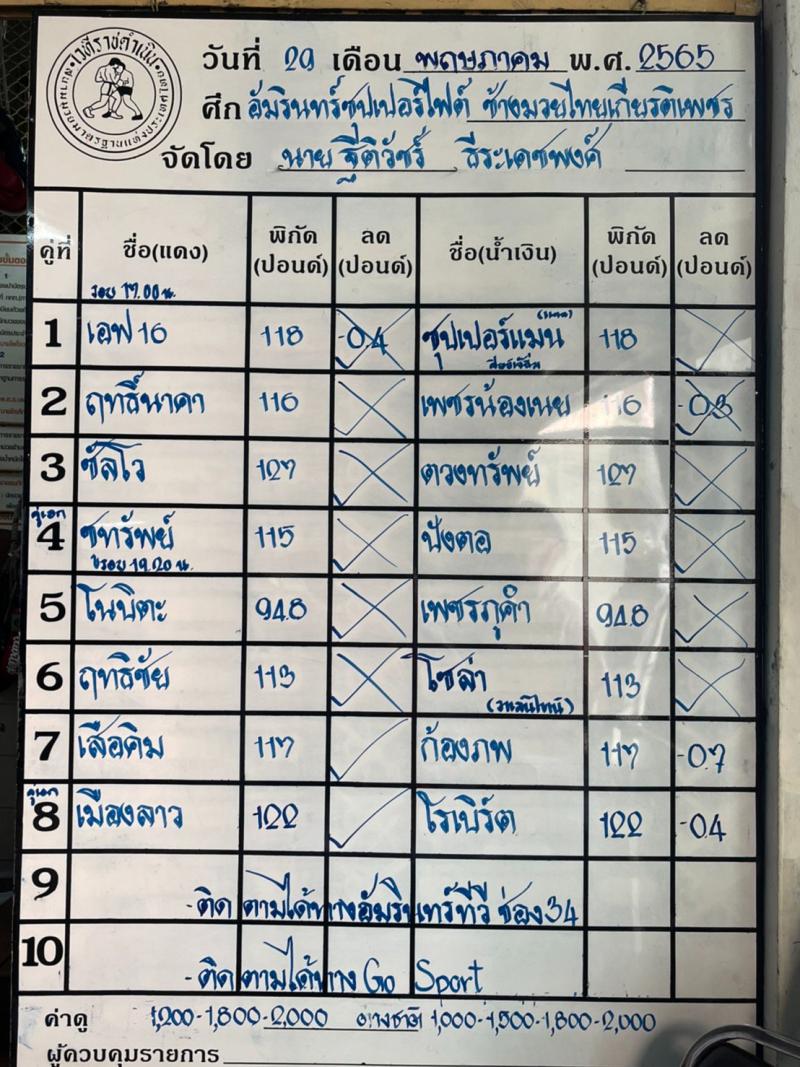 เวทีราชดำเนิน
วันที่ 29 เดือน พฤษภาคม พ.ศ. 2565
ศึก อัมรินทร์ซุปเปอร์ไฟต์ ช้างมวยไทยเกียรติเพชร
จัดโดย นาย ฐิติวัชร์ ธีระเดชพงศ์
คู่ที่ ชื่อ(แดง) พิกัด (ปอนด์) ลด (ปอนด์) ชื่อ(น้ำเงิน) พิกัด (ปอนด์) ลด (ปอนด์)
17.00 น.
1 เอฟ16 118 -0.4 ซุปเปอร์แมน 118
2 ฤทธิ์นาคา 116 เพชรน้องเนย 116 -0.3
3 ซัลโว 127 ดวงทรัพย์ 127
คู่เอก
4 ชทรัพย์ 115 ปังตอ 115
19.20 น.
5 โนบิตะ 94.8 เพชรภูคำ 94.8
6 ฤทธิชัย 113 โซล่า 113
7 เสือคิม 117 ก้องภพ 117 -0.7
คู่เอก
8 เมืองลาว 122 โรเบิร์ต 122 -0.4
9 - ติดตามได้ทางอัมรินทร์ทีวี ช่อง 34
10 - ติดตามได้ทาง Go Sport
ค่าดู 1,200-1,800-2,000 ต่างชาติ 1,000-1,500-1,800-2,000
ผู้ควบคุมรายการ